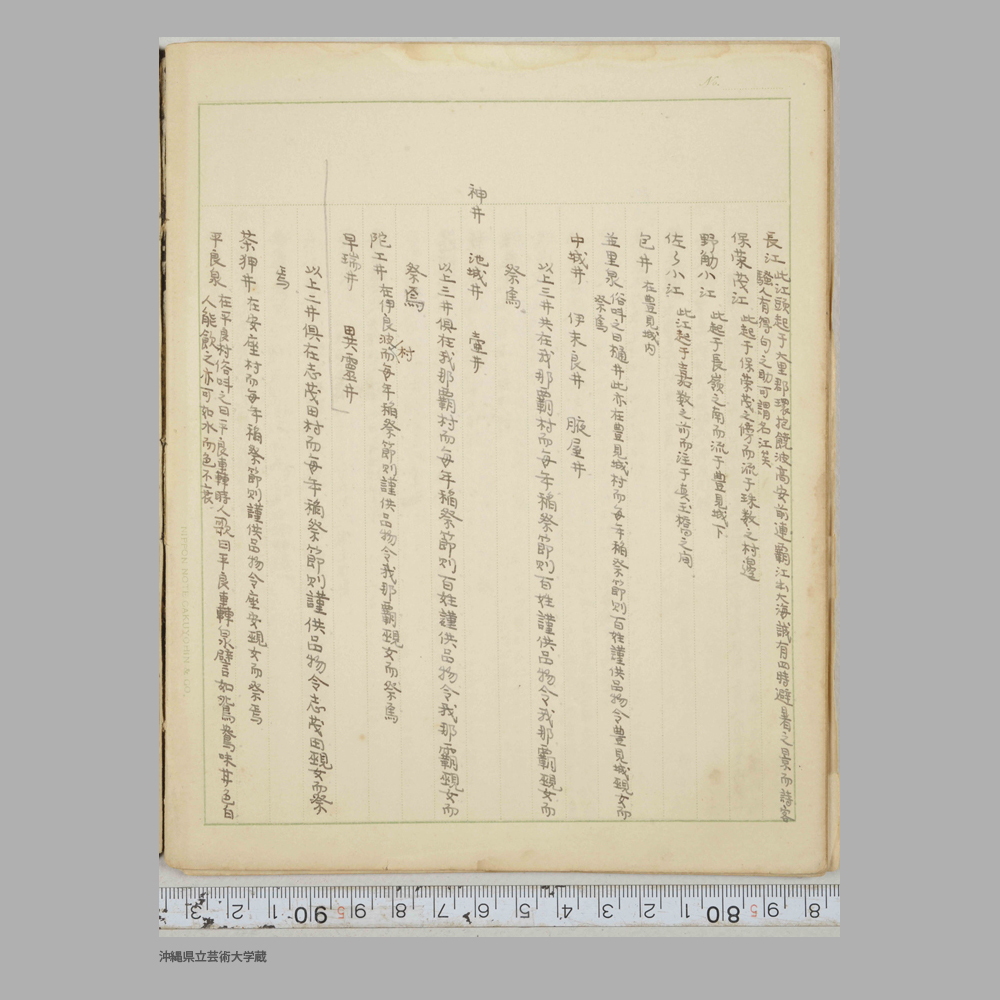 長江 此江頭起于大里郡環抱饒波高安前連覇江出大海誠有四時避暑之景而詩客
騷人有得句之助可謂名江矣
保栄茂江 此起于保栄茂之傍而流于珠数之村邊
野觔小江 此起于長嶺之南而流于豊見城下
佐々小江 此江起于嘉数之前而注于真玉橋之間
包井 在豊見城内
並里泉 俗叫之曰樋井此亦在豊見城村而毎年稲祭節則百姓謹供品物令豊見城覡女而
祭焉
中城井 伊末良井 腋屋井
以上三井共在我那覇村而毎年稲祭節則百姓謹供品物令我那覇覡女而
祭焉
神井 池城井 壷井
以上三井倶在我那覇村而毎年稲祭節則百姓謹供品物令我那覇覡女而
祭焉
陀工井 在伊良波村而毎年稲祭節則謹供品物令我那覇覡女而祭焉
早瑞井 異靈井
以上二井倶在志茂田村而毎年稲祭節則謹供品物令志茂田覡女而祭
焉
茶狎井 在安座村而毎年稲祭節則謹供品物令座安覡女而祭焉
平良泉 在平良村俗叫之曰平良車轉時人歌曰平良車轉泉譬如鴛鴦味井色白
人能飲之亦可如水而色不衰
NIPPON NOTE GAKUYOHIN & CO.
3 2 1 90 9 8 7 6 5 4 3 2 1 80 9 8
沖縄県立芸術大学蔵